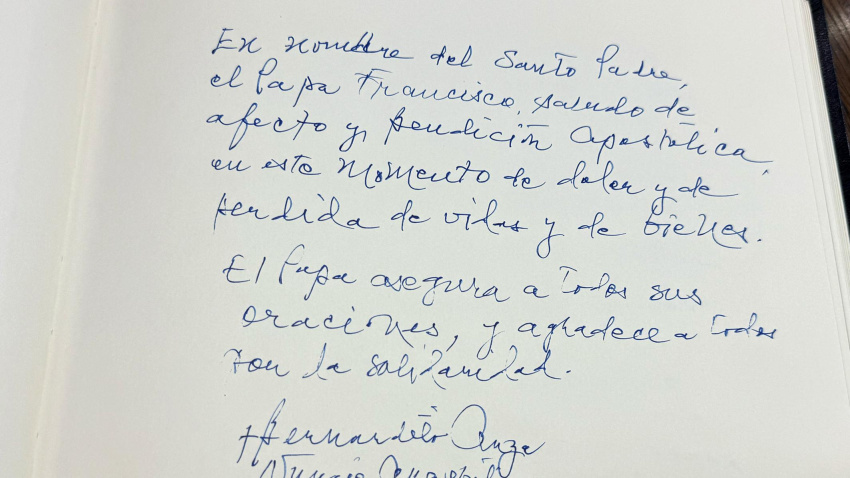 En nombre del Santo Padre,
el Papa Francisco, saludo de
afecto y bendición apostólica,
en este momento de dolor y de
perdida de vidas y de bienes.
El Papa asegura a todos sus
oraciones, y agradece a todos
por la solidaridad.
+Bernardito Auza
Nuncio Apostólico